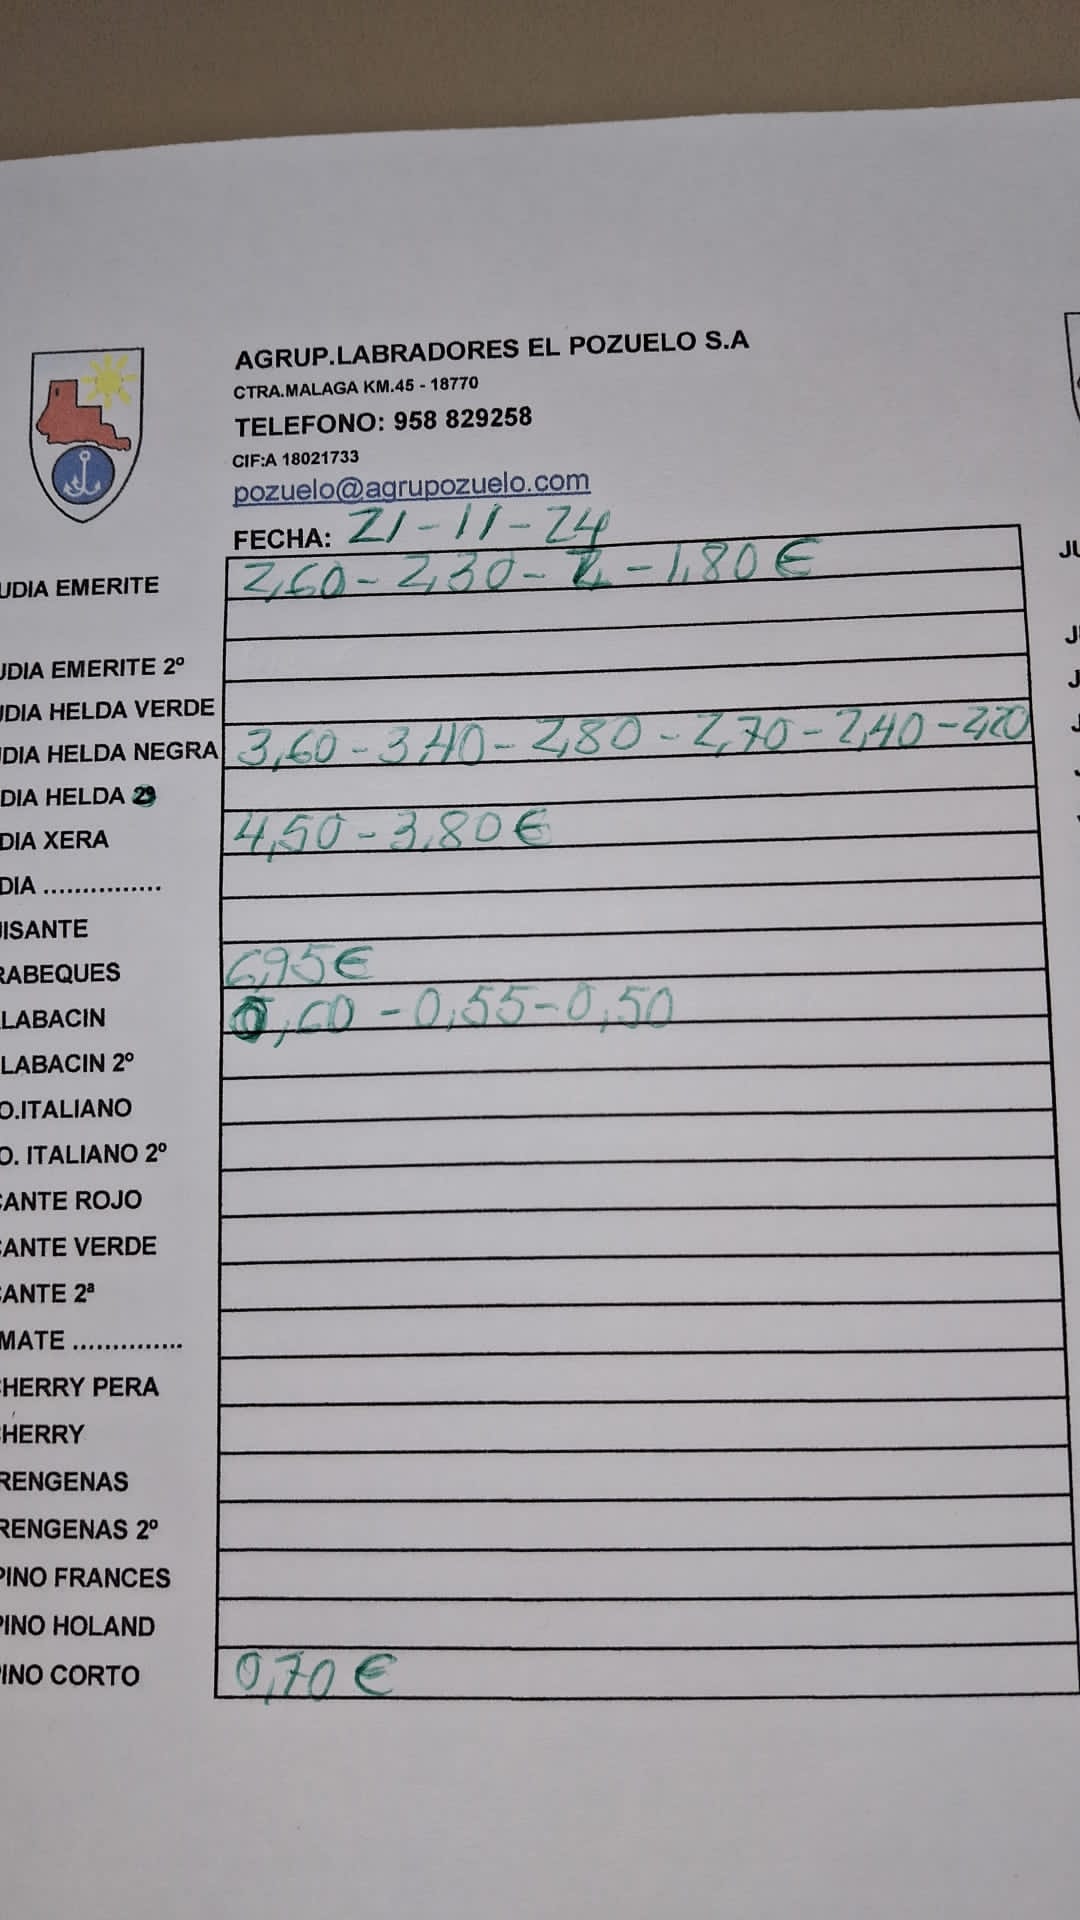 AGRUP.LABRADORES EL POZUELO S.A
CTRA.MALAGA KM.45 - 18770
TELEFONO: 958 829258
CIF:A 18021733
pozuelo@agrupozuelo.com
FECHA: 21-11-24
UDIA EMERITE 2,60 - 2,30 - 2, - 1,80 €
UDIA EMERITE 2º
UDIA HELDA VERDE
DIA HELDA NEGRA 3,60 - 3,40 - 2,80 - 2,70 - 2,40 - 2,20
DIA HELDA 2º
DIA XERA 4,50 - 3,80 €
DIA ...............
UISANTE
RABEQUES 6,95 €
LABACIN 0,60 - 0,55 - 0,50
LABACIN 2º
O.ITALIANO
O. ITALIANO 2º
CANTE ROJO
CANTE VERDE
CANTE 2ª
MATE ..............
CHERRY PERA
CHERRY
RENGENAS
RENGENAS 2º
PINO FRANCES
PINO HOLAND
PINO CORTO 0,70 €
JU
JU
J
J